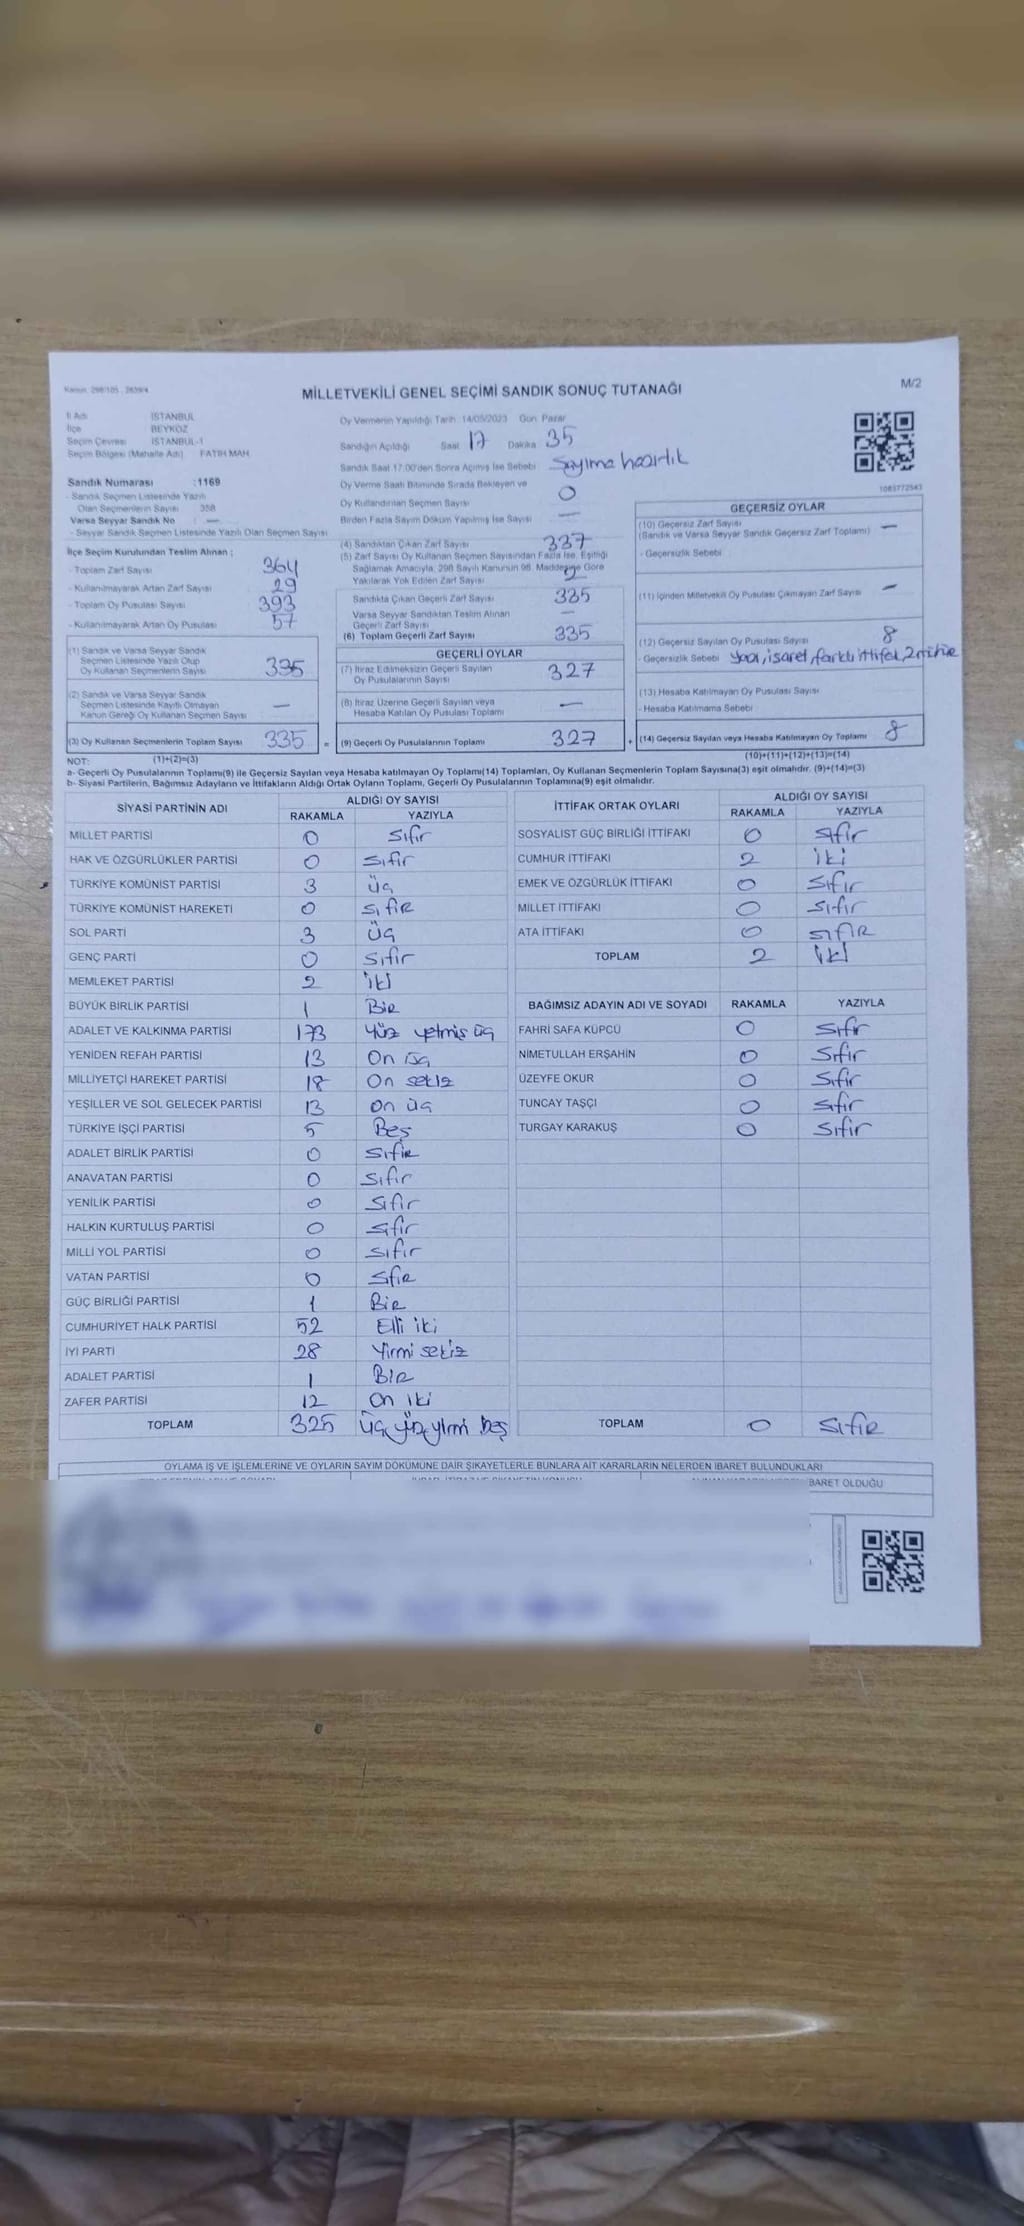 Kanun: 298/105 , 2839/4
MİLLETVEKİLİ GENEL SEÇİMİ SANDIK SONUÇ TUTANAĞI
M/2
İl Adı İSTANBUL
İlçe BEYKOZ
Seçim Çevresi İSTANBUL-1
Seçim Bölgesi (Mahalle Adı) FATİH MAH.
Sandık Numarası :1169
- Sandık Seçmen Listesinde Yazılı
Olan Seçmenlerin Sayısı 358
Varsa Seyyar Sandık No : —
- Seyyar Sandık Seçmen Listesinde Yazılı Olan Seçmen Sayısı
İlçe Seçim Kurulundan Teslim Alınan ;
- Toplam Zarf Sayısı 364
- Kullanılmayarak Artan Zarf Sayısı 29
- Toplam Oy Pusulası Sayısı 393
- Kullanılmayarak Artan Oy Pusulası 57
(1) Sandık ve Varsa Seyyar Sandık
Seçmen Listesinde Yazılı Olup
Oy Kullanan Seçmenlerin Sayısı 335
(2) Sandık ve Varsa Seyyar Sandık
Seçmen Listesinde Kayıtlı Olmayan
Kanun Gereği Oy Kullanan Seçmen Sayısı —
(3) Oy Kullanan Seçmenlerin Toplam Sayısı 335 =
Oy Vermenin Yapıldığı Tarih: 14/05/2023 Gün: Pazar
Sandığın Açıldığı Saat 17 Dakika 35
Sandık Saat 17:00'den Sonra Açılmış İse Sebebi Sayıma hazırlık
Oy Verme Saati Bitiminde Sırada Bekleyen ve
Oy Kullandırılan Seçmen Sayısı 0
Birden Fazla Sayım Döküm Yapılmış İse Sayısı —
(4) Sandıktan Çıkan Zarf Sayısı 337
(5) Zarf Sayısı Oy Kullanan Seçmen Sayısından Fazla İse, Eşitliği
Sağlamak Amacıyla, 298 Sayılı Kanunun 98. Maddesine Göre
Yakılarak Yok Edilen Zarf Sayısı 2
Sandıkta Çıkan Geçerli Zarf Sayısı 335
Varsa Seyyar Sandıktan Teslim Alınan
Geçerli Zarf Sayısı —
(6) Toplam Geçerli Zarf Sayısı 335
GEÇERLİ OYLAR
(7) İtiraz Edilmeksizin Geçerli Sayılan
Oy Pusulalarının Sayısı 327
(8) İtiraz Üzerine Geçerli Sayılan veya
Hesaba Katılan Oy Pusulası Toplamı —
(9) Geçerli Oy Pusulalarının Toplamı 327 +
1083772543
GEÇERSİZ OYLAR
(10) Geçersiz Zarf Sayısı —
(Sandık ve Varsa Seyyar Sandık Geçersiz Zarf Toplamı)
- Geçersizlik Sebebi
(11) İçinden Milletvekili Oy Pusulası Çıkmayan Zarf Sayısı —
(12) Geçersiz Sayılan Oy Pusulası Sayısı 8
- Geçersizlik Sebebi yazı, işaret, farklı ittifak, 2 mühür
(13) Hesaba Katılmayan Oy Pusulası Sayısı
- Hesaba Katılmama Sebebi
(14) Geçersiz Sayılan veya Hesaba Katılmayan Oy Toplamı 8
NOT: (1)+(2)=(3) (10)+(11)+(12)+(13)=(14)
a- Geçerli Oy Pusulalarının Toplamı(9) ile Geçersiz Sayılan veya Hesaba katılmayan Oy Toplamı(14) Toplamları, Oy Kullanan Seçmenlerin Toplam Sayısına(3) eşit olmalıdır. (9)+(14)=(3)
b- Siyasi Partilerin, Bağımsız Adayların ve İttifakların Aldığı Ortak Oyların Toplamı, Geçerli Oy Pusulalarının Toplamına(9) eşit olmalıdır.
SİYASİ PARTİNİN ADI ALDIĞI OY SAYISI
RAKAMLA YAZIYLA
MİLLET PARTİSİ 0 Sıfır
HAK VE ÖZGÜRLÜKLER PARTİSİ 0 Sıfır
TÜRKİYE KOMÜNİST PARTİSİ 3 üç
TÜRKİYE KOMÜNİST HAREKETİ 0 Sıfır
SOL PARTİ 3 üç
GENÇ PARTİ 0 Sıfır
MEMLEKET PARTİSİ 2 iki
BÜYÜK BİRLİK PARTİSİ 1 Bir
ADALET VE KALKINMA PARTİSİ 173 Yüz yetmiş üç
YENİDEN REFAH PARTİSİ 13 On üç
MİLLİYETÇİ HAREKET PARTİSİ 18 On sekiz
YEŞİLLER VE SOL GELECEK PARTİSİ 13 On üç
TÜRKİYE İŞÇİ PARTİSİ 5 Beş
ADALET BİRLİK PARTİSİ 0 Sıfır
ANAVATAN PARTİSİ 0 Sıfır
YENİLİK PARTİSİ 0 Sıfır
HALKIN KURTULUŞ PARTİSİ 0 Sıfır
MİLLİ YOL PARTİSİ 0 Sıfır
VATAN PARTİSİ 0 Sıfır
GÜÇ BİRLİĞİ PARTİSİ 1 Bir
CUMHURİYET HALK PARTİSİ 52 Elli iki
İYİ PARTİ 28 Yirmi sekiz
ADALET PARTİSİ 1 Bir
ZAFER PARTİSİ 12 On iki
TOPLAM 325 Üç yüz yirmi beş
İTTİFAK ORTAK OYLARI ALDIĞI OY SAYISI
RAKAMLA YAZIYLA
SOSYALİST GÜÇ BİRLİĞİ İTTİFAKI 0 Sıfır
CUMHUR İTTİFAKI 2 iki
EMEK VE ÖZGÜRLÜK İTTİFAKI 0 Sıfır
MİLLET İTTİFAKI 0 Sıfır
ATA İTTİFAKI 0 Sıfır
TOPLAM 2 iki
BAĞIMSIZ ADAYIN ADI VE SOYADI RAKAMLA YAZIYLA
FAHRİ SAFA KÜPCÜ 0 Sıfır
NİMETULLAH ERŞAHİN 0 Sıfır
ÜZEYFE OKUR 0 Sıfır
TUNCAY TAŞÇI 0 Sıfır
TURGAY KARAKUŞ 0 Sıfır
TOPLAM 0 Sıfır
OYLAMA İŞ VE İŞLEMLERİNE VE OYLARIN SAYIM DÖKÜMÜNE DAİR ŞİKAYETLERLE BUNLARA AİT KARARLARIN NELERDEN İBARET BULUNDUKLARI
İBARET OLDUĞU